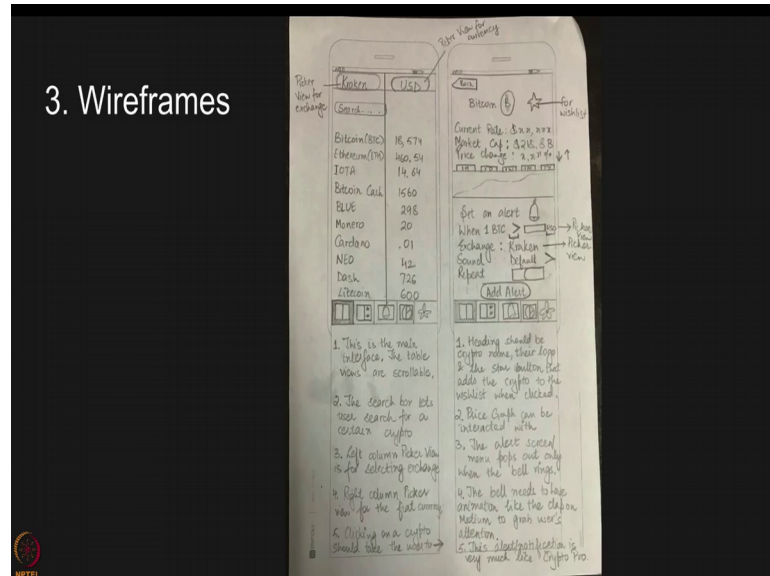 3. Wireframes
Picker View for currency
Picker
View for
exchange
Kraken
USD
Search....
Bitcoin(BTC) 18,574
Ethereum(ETH) 460,54
IOTA 14.64
Bitcoin Cash 1560
BLUE 298
Monero 20
Cardano .01
NEO 42
Dash 726
Litecoin 600
1. This is the main
interface. The table
views are scrollable.
2. The search box lets
user search for a
certain crypto
3. Left column Picker View
is for selecting exchange
4. Right column Picker
view for the fiat currency
5. Clicking on a crypto
should take the user to →
Back
Bitcoin B
for
wishlist
Current Rate: $xx,xxx
Market Cap: $215.8B
Price change: x,xx% ↓↑
Set an alert
When 1 BTC > USD → Picker
view
Exchange: Kraken → Picker
view
Sound Default >
Repeat
Add Alert
1. Heading should be
crypto name, their logo
& the star button that
adds the crypto to the
wishlist when clicked.
2. Price Graph can be
interacted with
3. The alert screen/
menu pops out only
when the bell rings.
4. The bell needs to have
animation like the clap on
Medium to grab user's
attention.
5. This alert/notification is
very much like Crypto Pro.
NPTEL